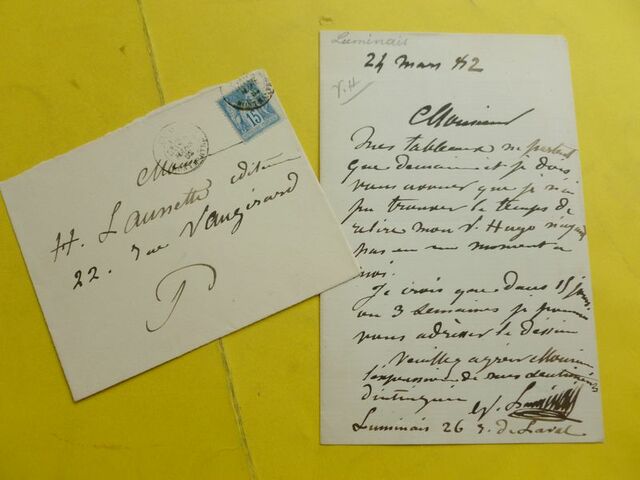 Monsieur
H. Launette editeur
22. rue Vaugirard
P
15
Luminais
24 mars 82
V.H
Monsieur
Mes tableaux ne partent
que demain et je dois
vous avouer que je n'ai
pu trouver le temps de
relire mon V. Hugo n'ayant
pas eu un moment a
moi.
Je crois que dans 15 jours
ou 3 semaines je pourrai
vous adresser le dessin
Veuillez agréer Monsieur
l'expression de mes sentiments
distingués
ev. Luminais
Luminais 26 de Laval